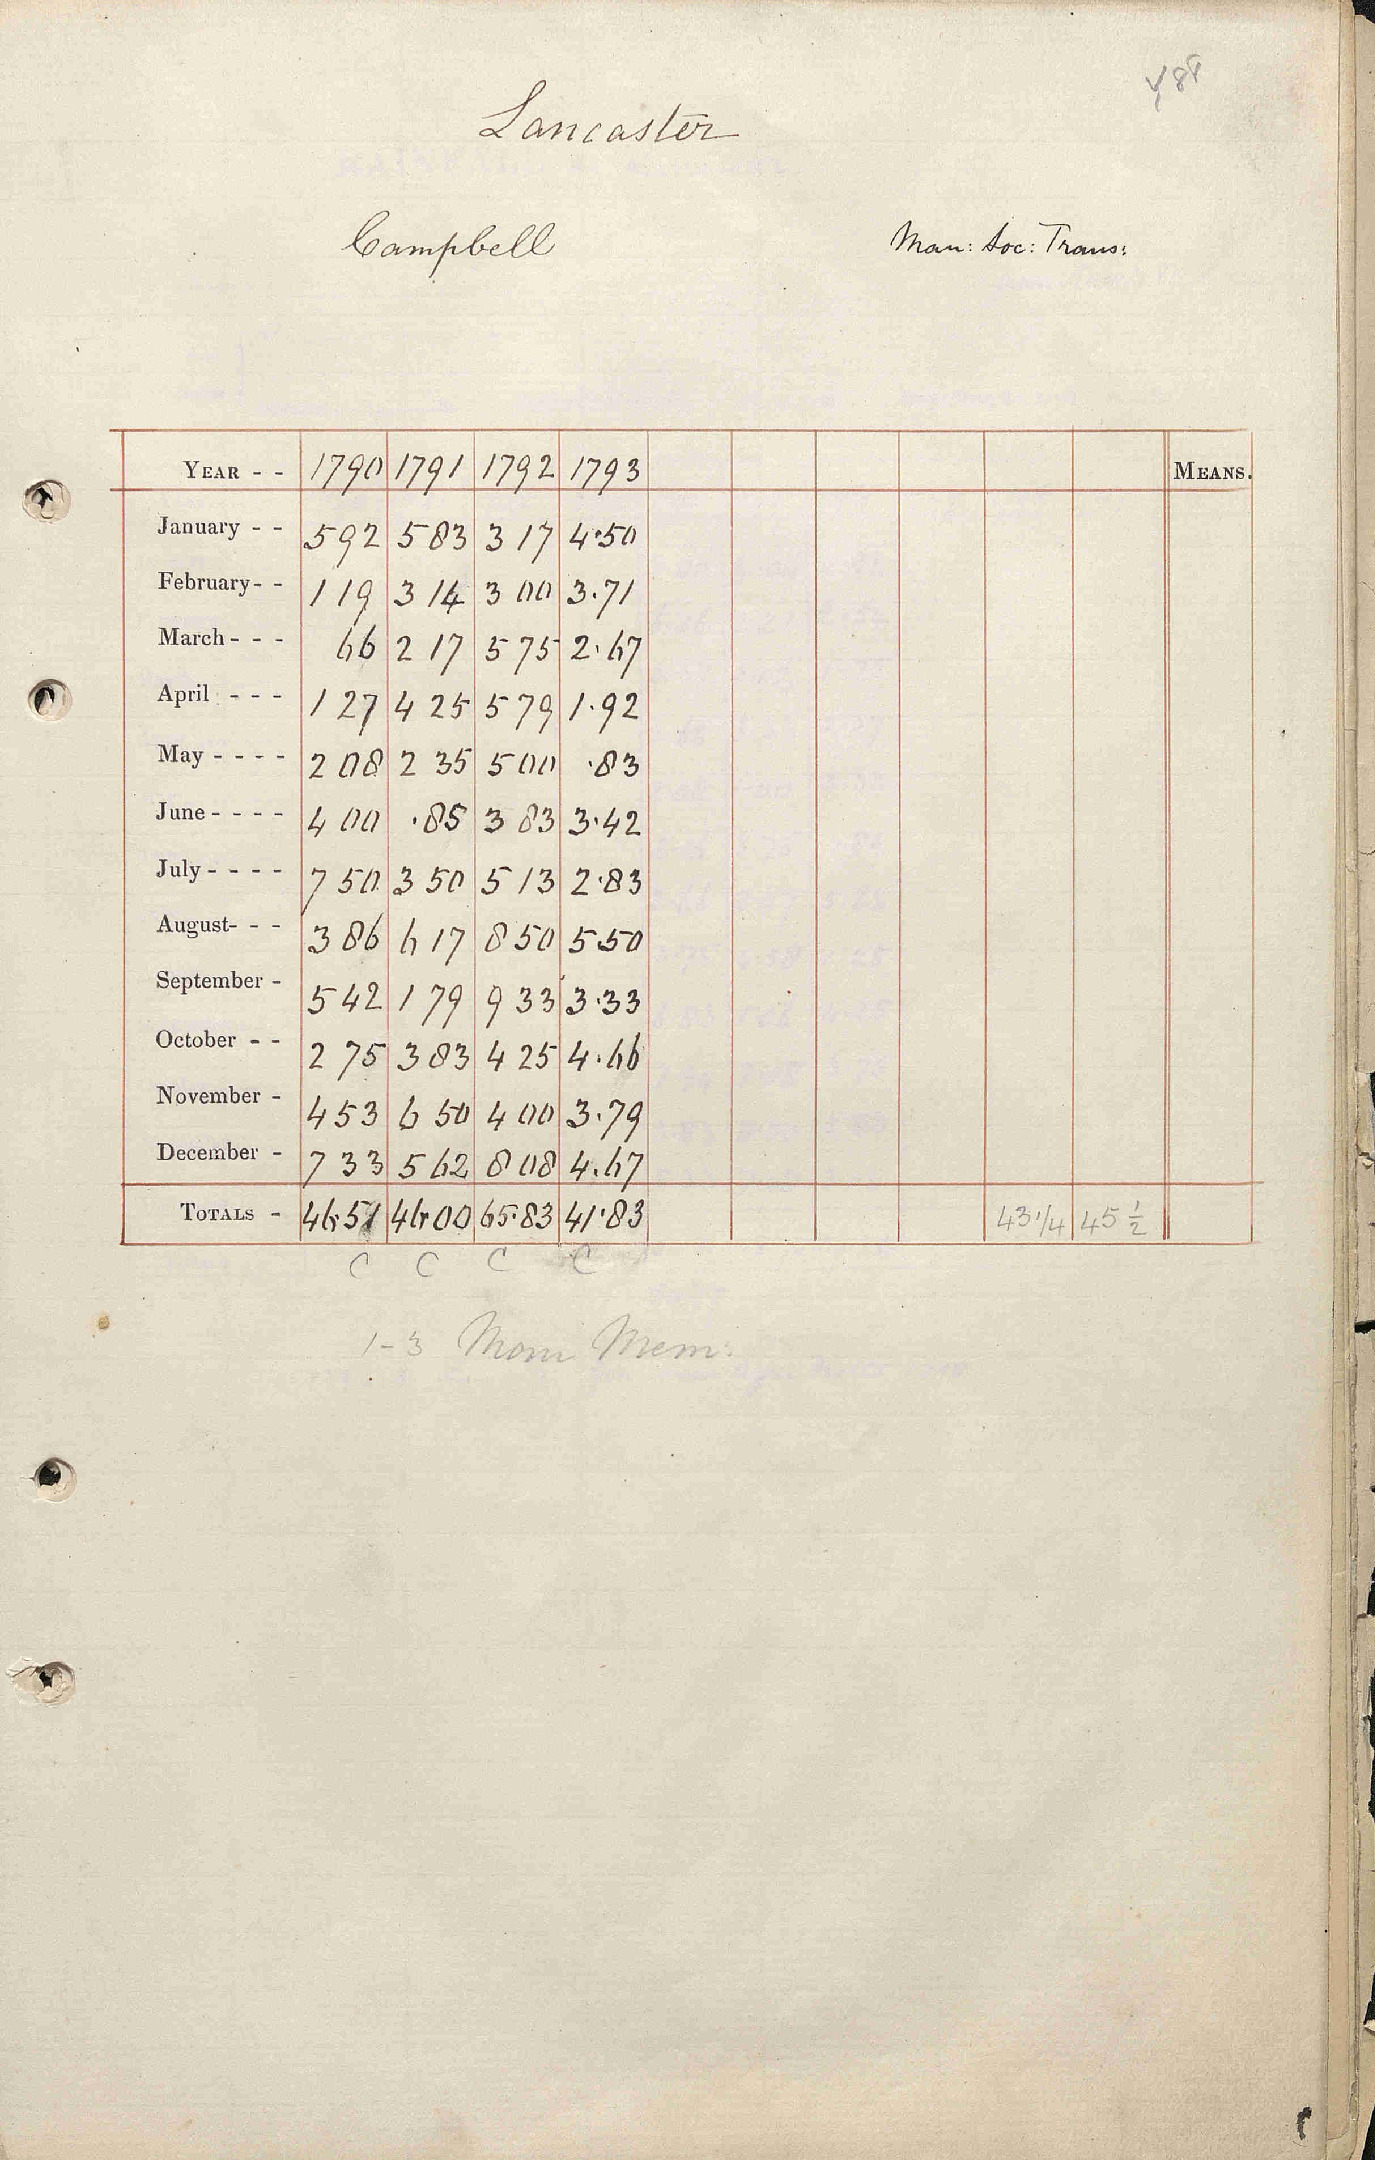 Lancaster
Campbell Man: Soc: Trans:
YEAR - - 1790 1791 1792 1793 MEANS.
January - - 592 583 317 4.50
February - - 119 314 300 3.71
March - - - 66 217 575 2.67
April - - - 127 425 579 1.92
May - - - - 208 235 500 .83
June - - - - 400 .85 383 3.42
July - - - - 750 350 513 2.83
August - - - 386 617 850 550
September - 542 179 933 3.33
October - - 275 383 425 4.66
November - 453 650 400 3.79
December - 733 562 808 4.67
TOTALS - 46.51 46.00 65.83 41.83 43 1/4 45 1/2
C C C C
1-3 Mem: